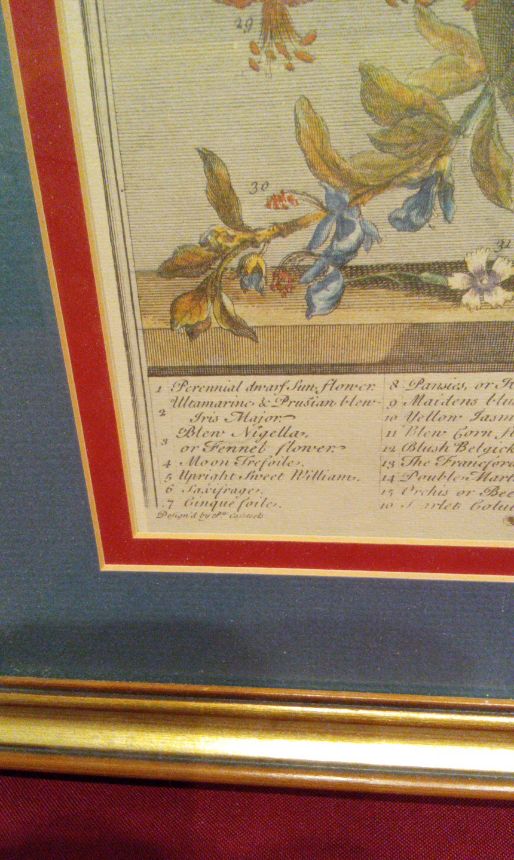 29
30
31
1 Perennial dwarf Sun flower.
2 Ultamarine & Prusian blew
Iris Major
3 Blew Nigella,
or Fennel flower.
4 Moon Trefoile.
5 Upright Sweet William.
6 Saxifrage.
7 Cinque foile.
Design'd by Pr. Casteels
8 Pansies, or
9 Maidens
10 Yellow
11 Blew Corn
12 Blush Belgick
13 The
14 Double
15 Orchis or Bee
16 Scarlet